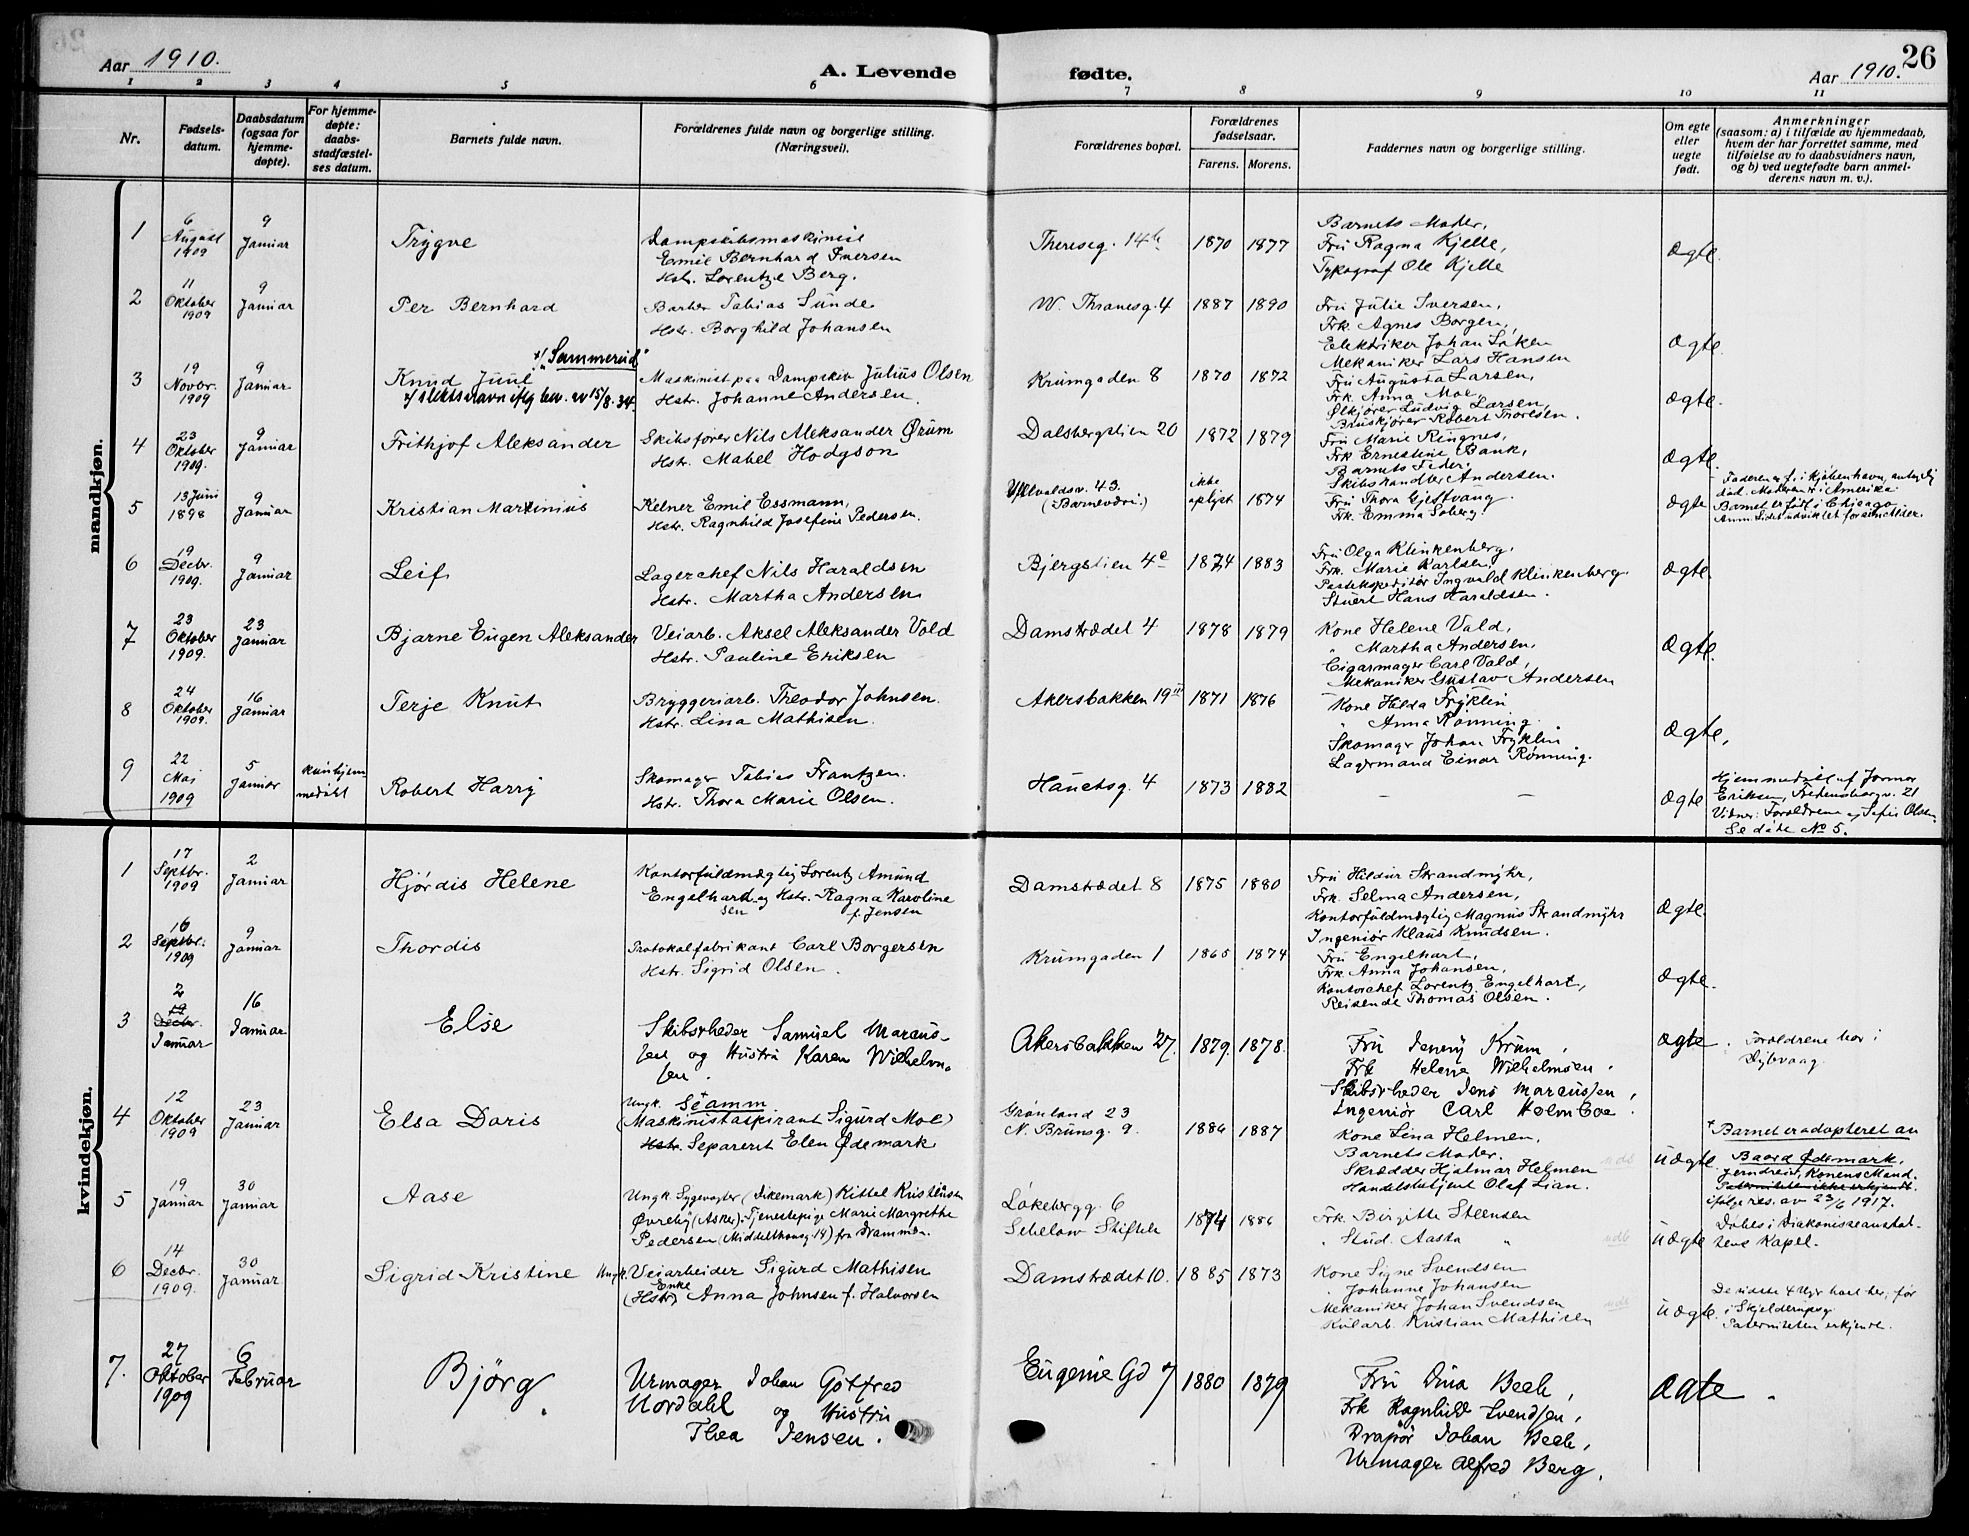 Aar 1910.
A. Levende
fødte.
Aar 1910.
26
1 2 3 4 5 6 7 8 9 10 11
Nr.
Fødsels-
datum.
Daabsdatum
(ogsaa for
hjemme-
døpte).
For hjemme-
døpte:
daabs-
stadfæstel-
ses datum.
Barnets fulde navn.
Forældrenes fulde navn og borgerlige stilling.
(Næringsvei).
Forældrenes bopæl.
Forældrenes
fødselsaar.
Farens. Morens.
Faddernes navn og borgerlige stilling.
Om egte
eller
uegte
født.
Anmerkninger
(saasom: a) i tilfælde av hjemmedaab,
hvem der har forrettet samme, med
tilføielse av to daabsvidners navn,
og b) ved uegtefødte barn anmel-
derens navn m. v.).
mandkjøn.
1
6
August
1909
9
Januar
Trygve
Dampskibsmaskinist
Emil Bernhard Iversen
Hstr. Lorentze Berg.
Thereseg. 14b
1870 1877
Barnets Moder,
Fru Ragna Kjelle,
Typograf Ole Kjelle
Ægte.
2
11
Oktober
1909
9
Januar
Per Bernhard
Barber Tobias Sunde
Hstr. Borghild Johansen
W. Thranesg. 4
1887 1890
Fru Julie Iversen,
Frk. Agnes Borgen,
Elektriker Johan Løken
Mekaniker Lars Hansen
Ægte.
3
19
Novbr.
1909
9
Januar
x/ "Sommereid"
Knud Juul
x/ slektsnavn iflg bev. av 15/8. 34.
Maskinist paa Dampskib Julius Olsen
Hstr. Johanne Andersen.
Krumgaden 8
1870 1872
Fru Augusta Larsen,
Frk. Anna Moe,
Ølkjører Ludvig Larsen,
Bruskjører Robert Thoresen.
Ægte.
4
23
Oktober
1909.
9
Januar
Frithjof Aleksander
Skibsfører Nils Aleksander Ørum
Hstr. Mabel Hodgson
Dalsbergstien 20
1872 1879
Fru Marie Ringnes,
Frk Ernestine Bank,
Barnets Fader,
Skibshandler Andersen.
Ægte.
5
13 Juni
1898
9
Januar
Kristian Martinius
Kelner Emil Essmann,
Hstr. Ragnhild Josefine Pedersen.
Ullevaldsv. 43.
ikke
oplyst 1874
Fru Thora Gjestvang.
Frk. Emma Soberg
Ægte
Faderen er f. i Kjøbenhavn, antagelig
død. Moderen i Amerika
Barnet er født i Chicago
6
19
Decbr.
1909.
9
Januar
Leif
Lagerchef Nils Haraldsen
Hstr. Martha Andersen
Bjergstien 4c
1874 1883
Fru Olga Klinkenberg,
Frk. Marie Karlsen,
Postekspeditør Ingvald Klinkenberg
Stuert Hans Haraldsen.
Ægte.
7
23
Oktober
1909.
23
Januar
Bjarne Eugen Aleksander
Veiarb. Aksel Aleksander Vold
Hstr. Pauline Eriksen
Damstrædet 4
1878 1879
Kone Helene Vald,
" Martha Andersen,
Cigarmager Carl Vald,
Mekaniker Gustav Andersen
Ægte.
8
24
Oktober
1909.
16
Januar
Terje Knut
Bryggeriarb. Theodor Johnsen.
Hstr. Lina Mathisen.
Akersbakken 19 II
1871 1876
Kone Hilda Fryklin
" Anna Rønning.
Skomager Johan Fryklin
Lagermand Einar Rønning.
Ægte,
9
22
Maj
1909
5
Januar
kun hjem
medøbt
Robert Harry
Skomager Tobias Frantzen.
Hstr. Thora Marie Olsen.
Hauetsg. 4
1873 1882
– –
Ægte
Hjemmedøbt af Jormor
Eriksen, Fredensborgv. 21
Vidner: Forældrene og Sofie Olsen,
Se døde No 5.
kvindekjøn.
1
17
Septbr.
1909
2
Januar
Hjørdis Helene
Kontorfuldmægtig Lorentz Amund
Engelhart og Hstr. Ragna Karoline
sen f. Jensen
Damstrædet 8
1875 1880
Fru Hildur Strandmyhr,
Frk. Selma Andersen,
Kontorfuldmægtig Magnus Strandmyhr
Ingeniør Klaus Knudsen.
Ægte.
2
16
Septbr.
1909
9
Januar
Thordis
Protokolfabrikant Carl Borgersen
Hstr. Sigrid Olsen.
Krumgaden 1
1865 1874
Fru Engelhart,
Frk. Anna Johansen,
Kontorchef Lorentz Engelhart,
Reisende Thomas Olsen.
Ægte.
3
2
19
Decbr.
Januar
16
Januar
Else
Skibsrheder Samuel Marcus-
sen og Hustru Karen Wilhelm-
sen.
Akersbakken 27.
1879. 1878.
Fru Jenny Krum,
Frk Helene Wilhelmsen.
Skibsrheder Jens Marcussen,
Ingeniør Carl Holmboe.
Ægte.
Forældrene bor i
Dybvaag.
4
12
Oktober
1909
23
Januar
Elsa Doris
Ungk. Stamm
(Maskinistaspirant Sigurd Moe)
Hstr. Separeret Elen Ødemark
Grønland 23
N. Brunsg. 9.
1886 1887
Kone Lina Helmen,
Barnets Moder.
Skrædder Hjalmar Helmen
Handelsbetjent Olaf Lian.
udb
uægte.
+ Barnet er adopteret av
Baard Ødemark,
Jerndreier, Konens Mand.
Paterniteten ikke erkjendt.
ifølge res. av 23/6 1917.
5
19
Januar
30
Januar
Aase
Ungk. Sygevogter (Dikemark) Kittel Kristensen
Øvreby (Asker). Tjenestepige Marie Margrethe
Pedersen (Middelthonsg. 14) fra Drammen.
Løkebergg. 6
Sebelow Stiftelse
1874 1886
Frk. Birgitte Steensen
" Stud. Aasta "
udb
uægte
Døbes i Diakonisseanstal-
tens Kapel.
6
14
Decbr.
1909.
30
Januar
Sigrid Kristine
Ungk. Veiarbeider Sigurd Mathisen
Enke
(Hstr.) Anna Johnsen f. Halvorsen
Damstrædet 10.
1885 1873
Kone Signe Svendsen
" Johanne Johansen
Mekaniker Johan Svendsen
Kularb. Kristian Mathisen
udb
uægte.
De sidste 4 Uger boet her, før
i Skjelderupsg.
Paterniteten erkjendt.
7.
27
Oktober
1909
6
Februar
Bjørg.
Urmager Johan Gotfred
Nordahl og Hustru
Thea Jensen.
Eugenie Gd 7
1880 1879
Fru Dina Beck,
Frk Ragnhild Svendsen,
Drapør Johan Beck,
Urmager Alfred Berg.
Ægte.